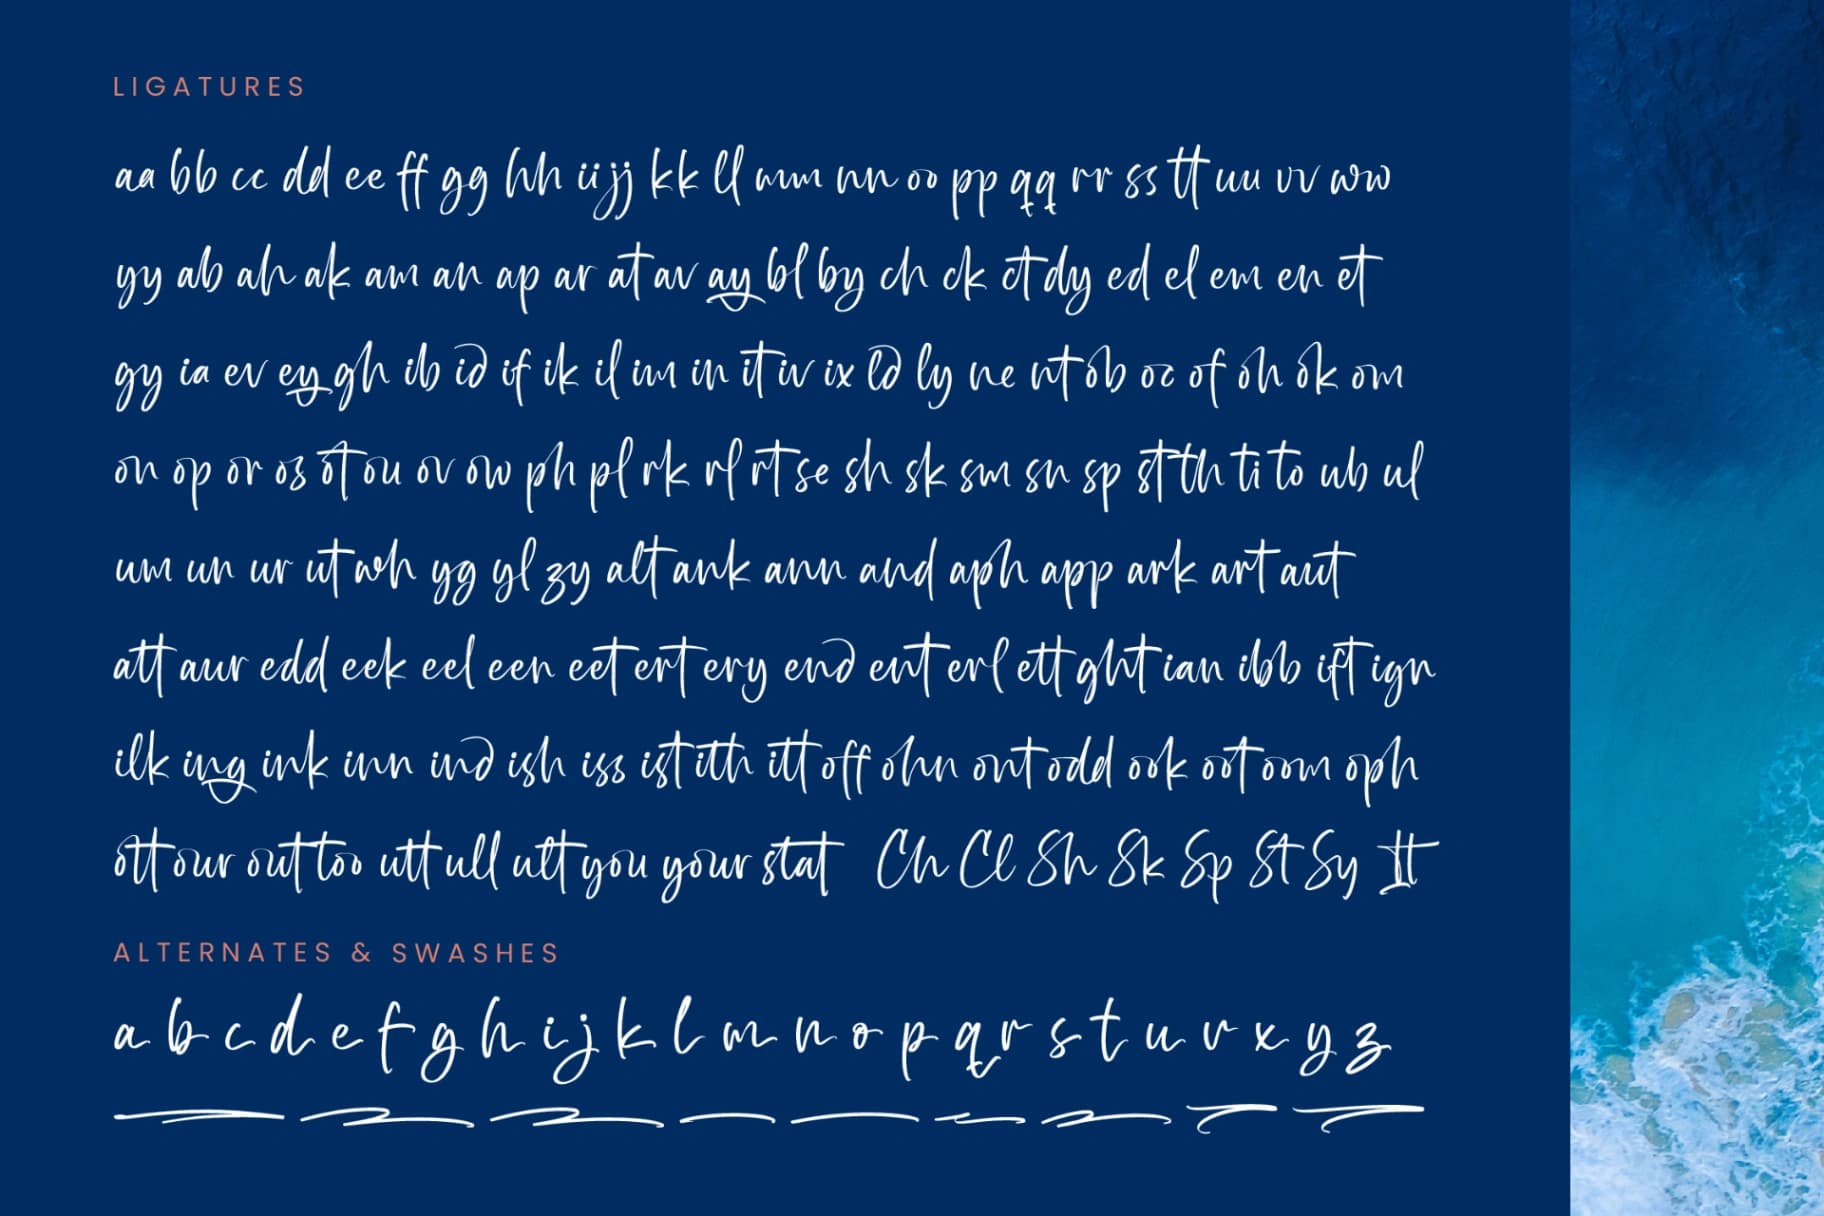 LIGATURES
aa bb cc dd ee ff gg hh ii jj kk ll mm nn oo pp qq rr ss tt uu vv ww
yy ab ah ak am an ap ar at av ay bl by ch ck ct dy ed el em en et
gy ia ev ey gh ib id if ik il im in it iv ix ld ly ne nt ob oc of oh ok om
on op or os ot ou ov ow ph pl rk rl rt se sh sk sm sn sp st th ti to ub ul
um un ur ut wh yg yl zy alt ank ann and aph app ark art aut
att aur edd eek eel een eet ert ery end ent erl ett ght ian ibb ift ign
ilk ing ink inn ind ish iss ist ith itt off ohn ont odd ook oot oom oph
ott our out too utt ull ult you your stat Ch Cl Sh Sk Sp St Sy It
ALTERNATES & SWASHES
a b c d e f g h i j k l m n o p q r s t u v x y z